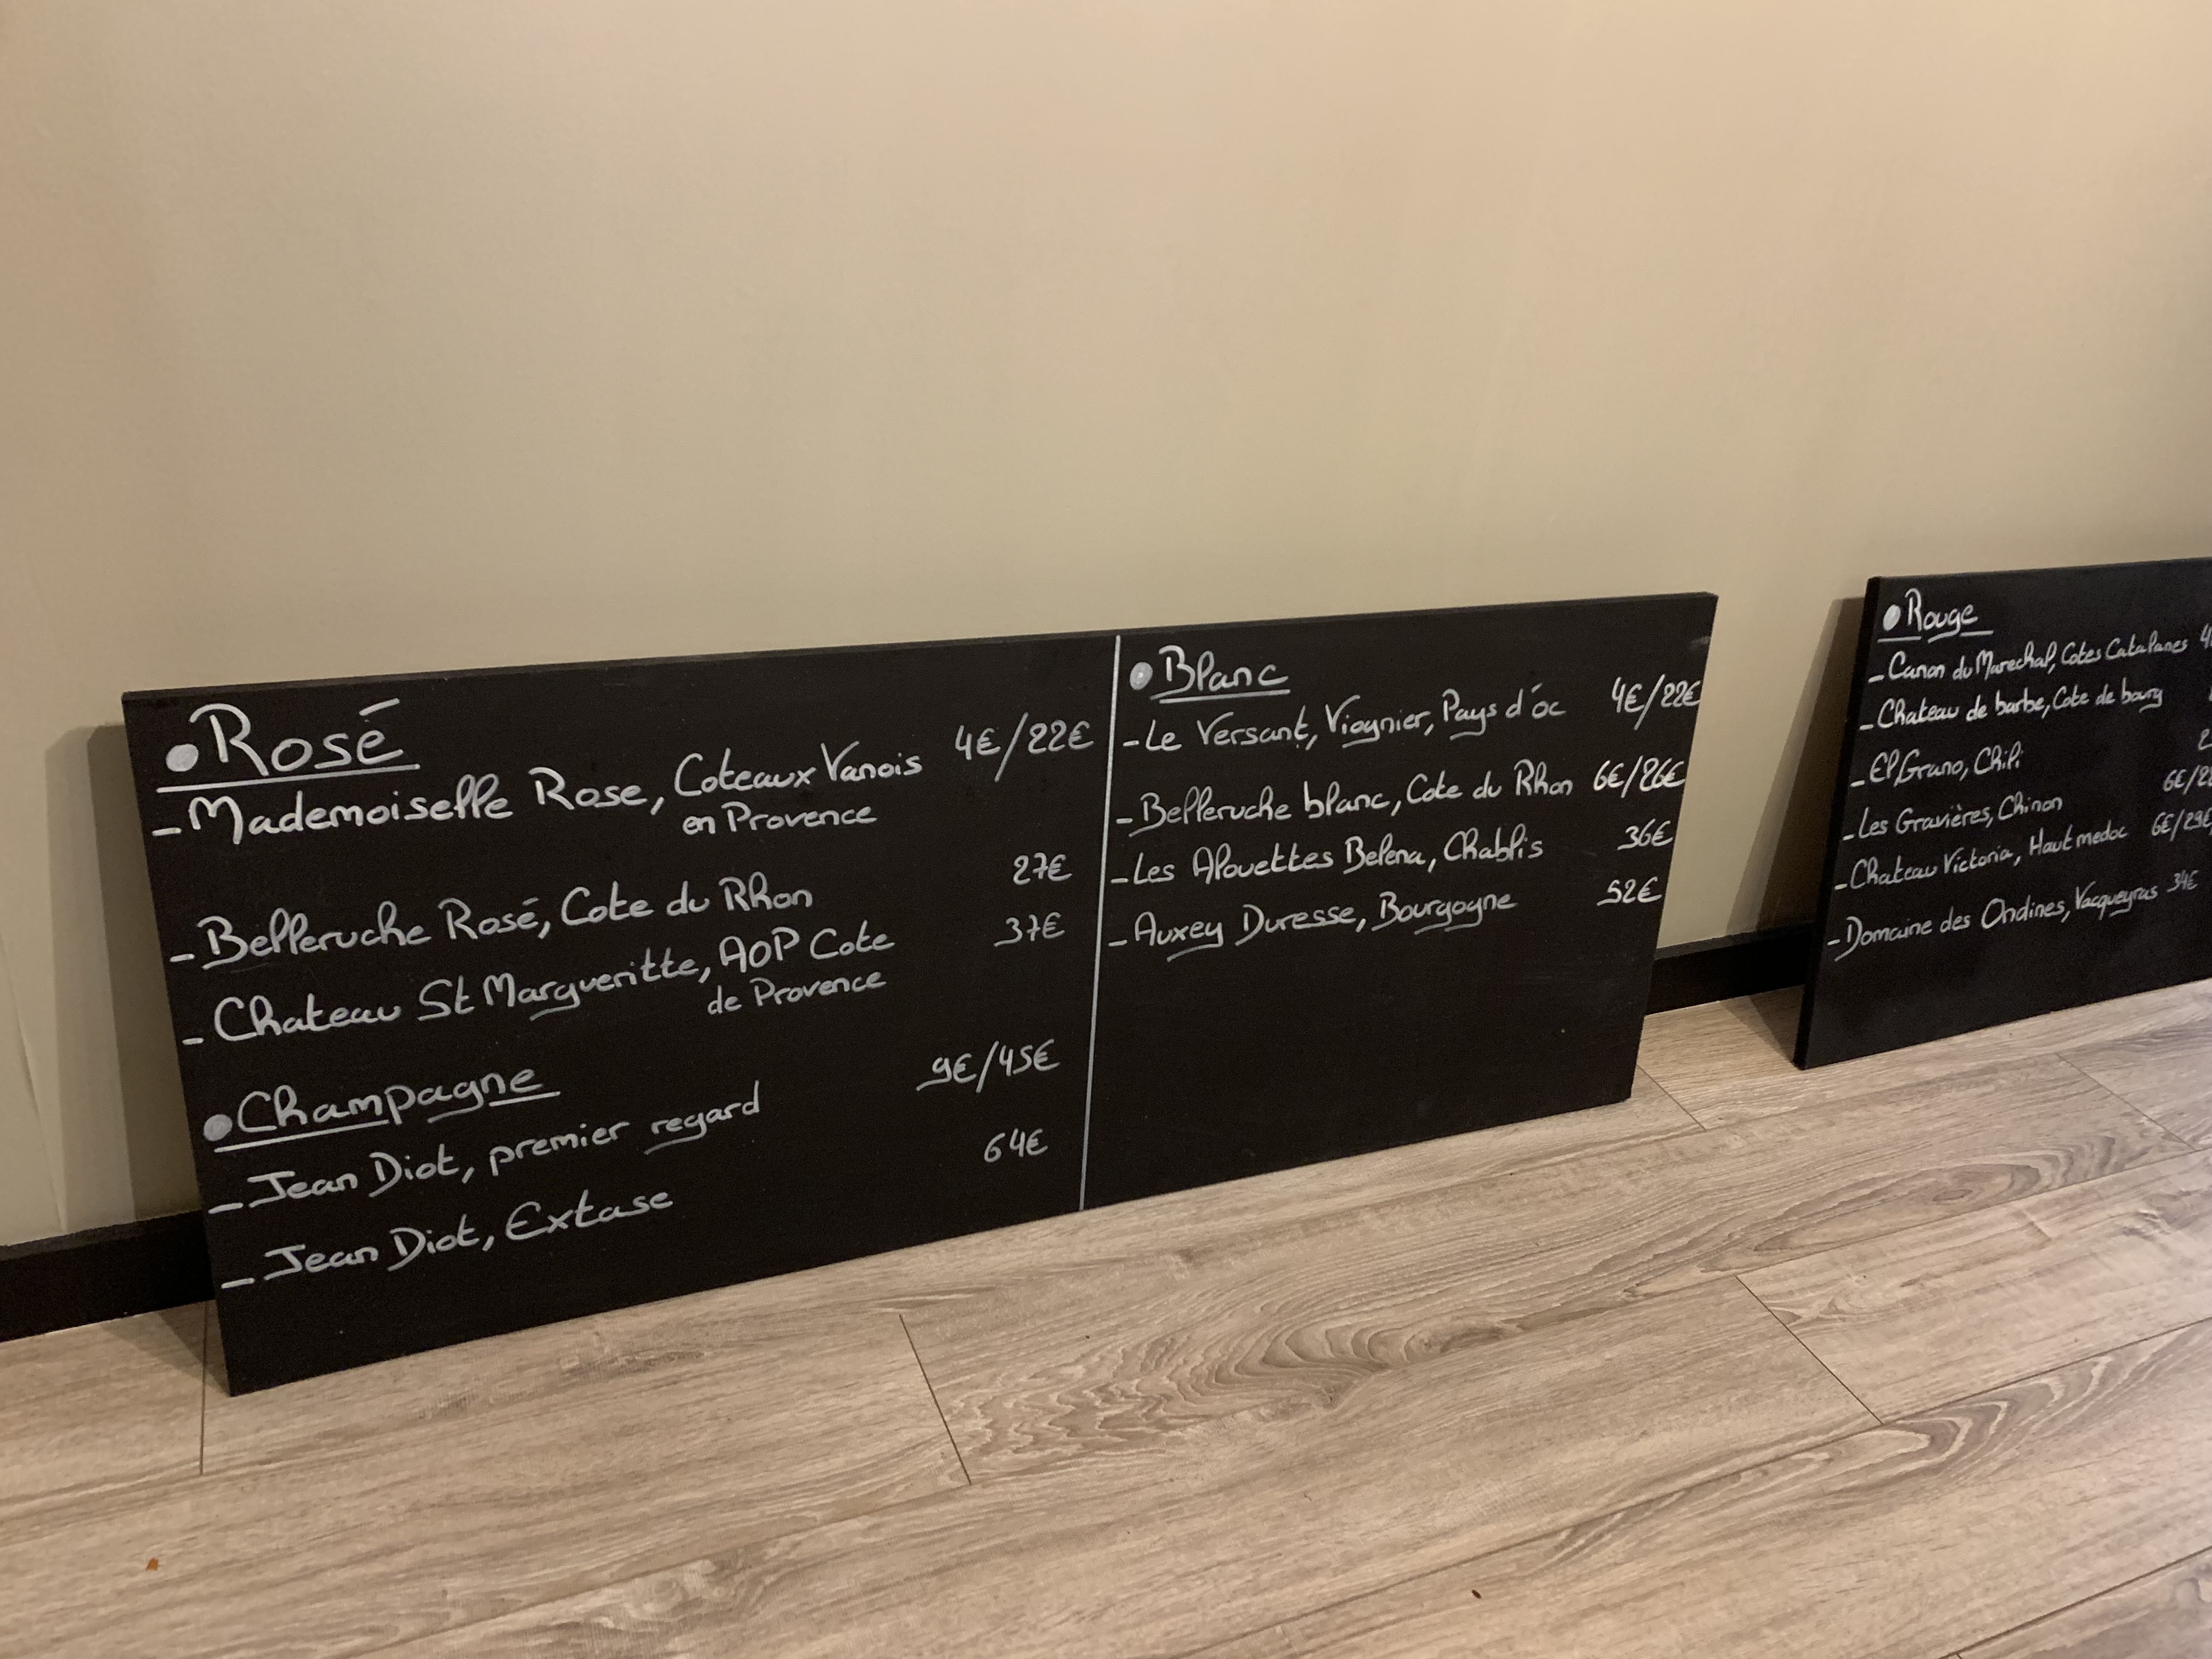 Rosé
- Mademoiselle Rose, Coteaux Varois 4€/22€
en Provence
- Belleruche Rosé, Cote du Rhon 27€
- Chateau St Margueritte, AOP Cote 37€
de Provence
Champagne
- Jean Diot, premier regard 9€/45€
- Jean Diot, Extase 64€
Blanc
- Le Versant, Viognier, Pays d'óc 4€/22€
- Belleruche blanc, Cote du Rhon 6€/26€
- Les Alouettes Belena, Chablis 36€
- Auxey Duresse, Bourgogne 52€
Rouge
- Canon du Marechal, Cotes Catalanes
- Chateau de barbe, Cote de bourg
- El Grano, Chili
- Les Gravières, Chinon
- Chateau Victoria, Haut medoc 6€/29€
- Domaine des Ondines, Vacqueyras 34€